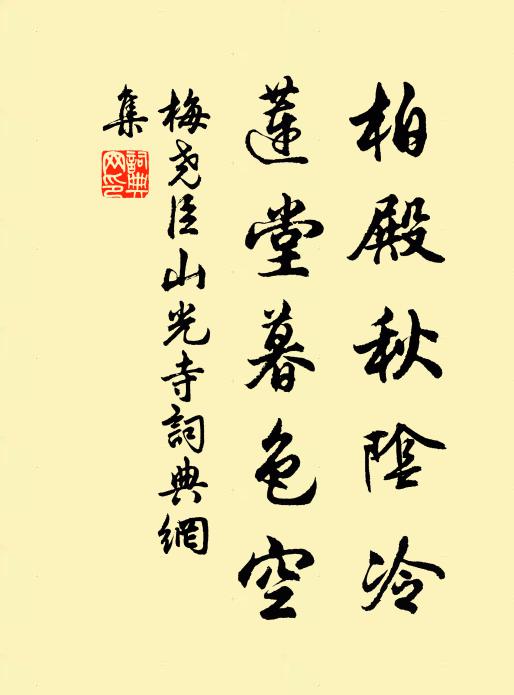 柏殿秋陰冷
蓮堂暮色空
梅尧臣山光寺詞典網
集
詞典網印